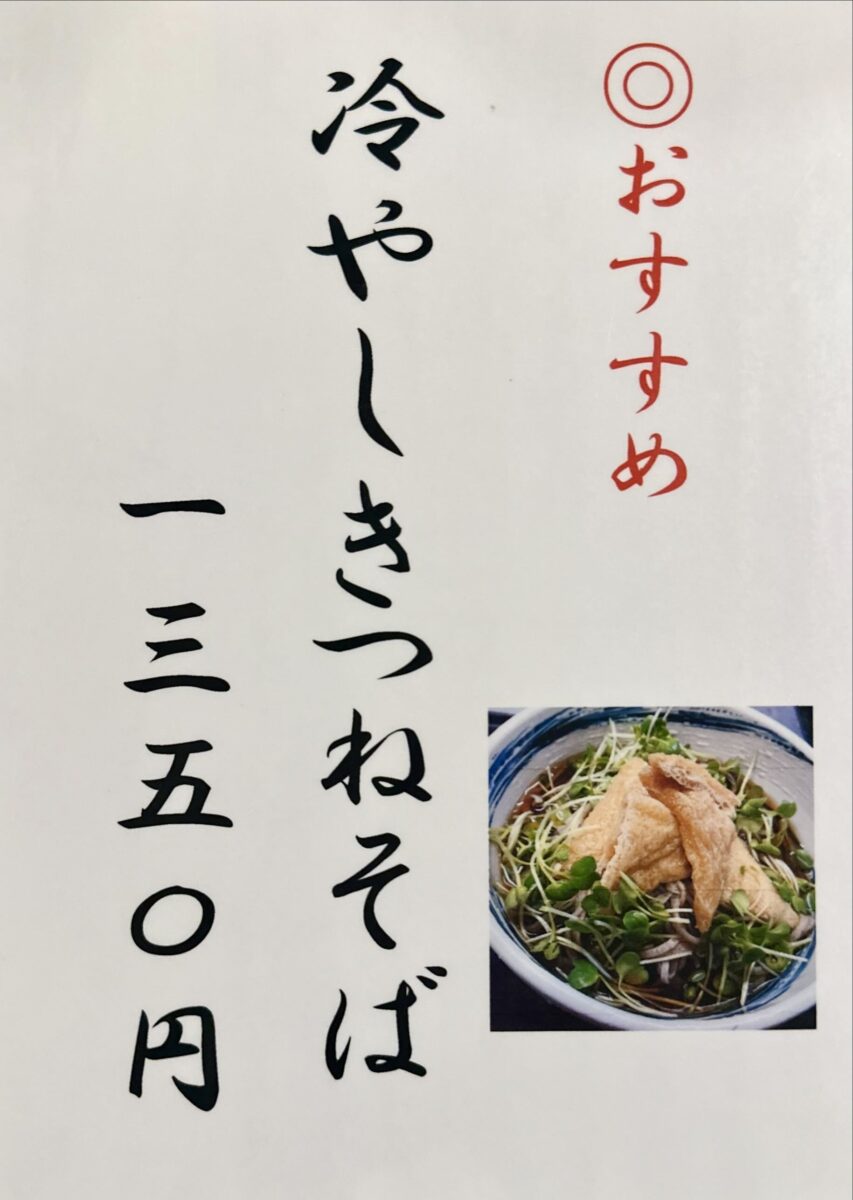 ◎おすすめ
冷やしきつねそば
一三五〇円